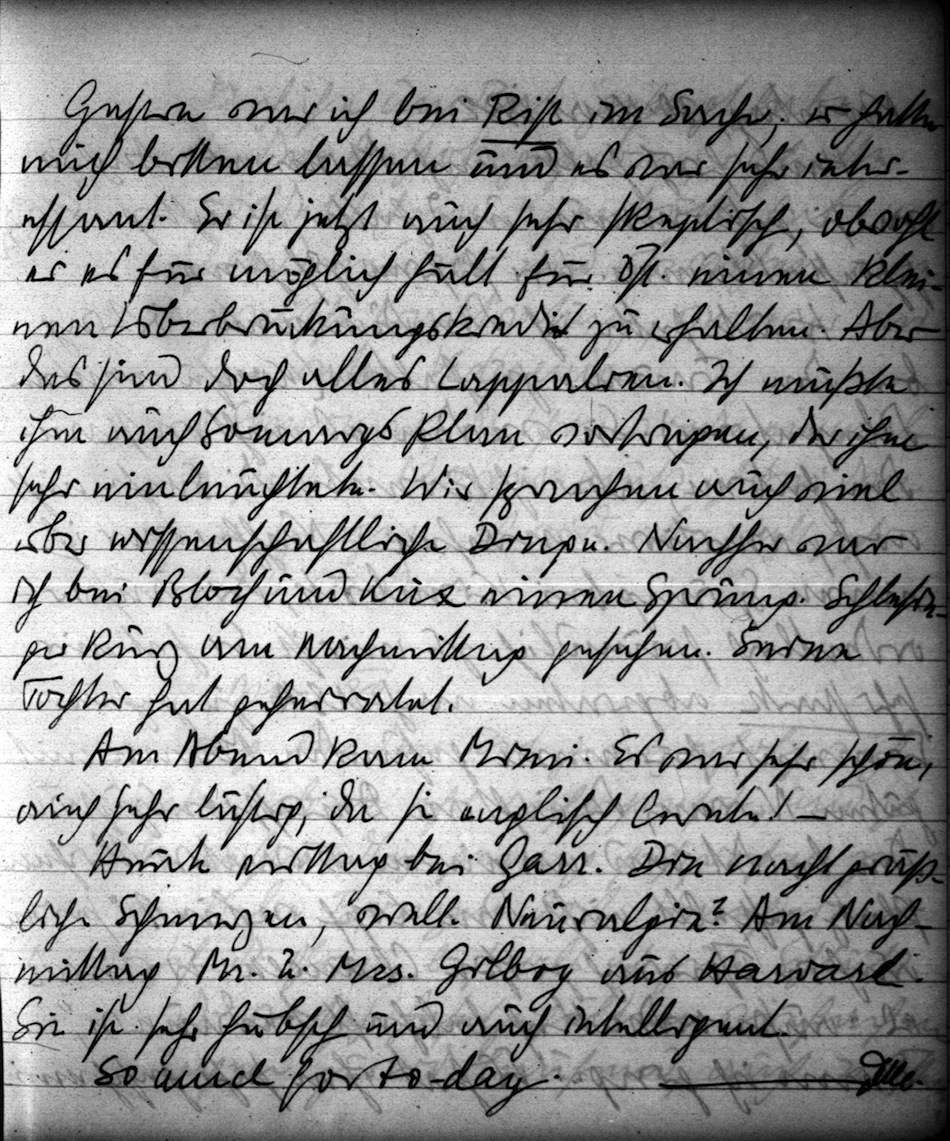 Gestern war ich bei Rist im Sacher, er hatte
mich bitten lassen und es war sehr inter-
essant. Er ist jetzt auch sehr skeptisch, obwohl
er es für möglich hält für Öst. einen klei-
nen Überbrückungskredit zu erhalten. Aber
das sind doch alles Lappalien. Ich mußte
ihm auch Somarys Plan vortragen, der ihm
sehr einleuchtete. Wir sprachen auch viel
über wissenschaftliche Dinge. Nachher war
ich bei Bloch und Kux einen Sprung. Schlesin-
ger kurz am Nachmittag gesehen. Seine
Tochter hat geheiratet.
Am Abend kam Mimi. Es war sehr schön,
auch sehr lustig, da sie englisch lernte! —
Heute mittag bei Garr. Die Nacht gräß-
liche Schmerzen, viell. Neuralgie? Am Nach-
mittag Mr. u. Mrs. Gilboy aus Harvard.
Sie ist sehr hübsch und auch intelligent.
So and for to-day.